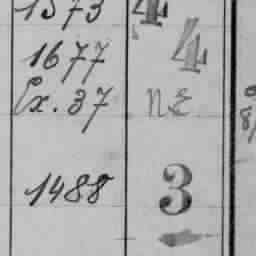 1573 4
1677 4
Ex. 37 NE
1488 3